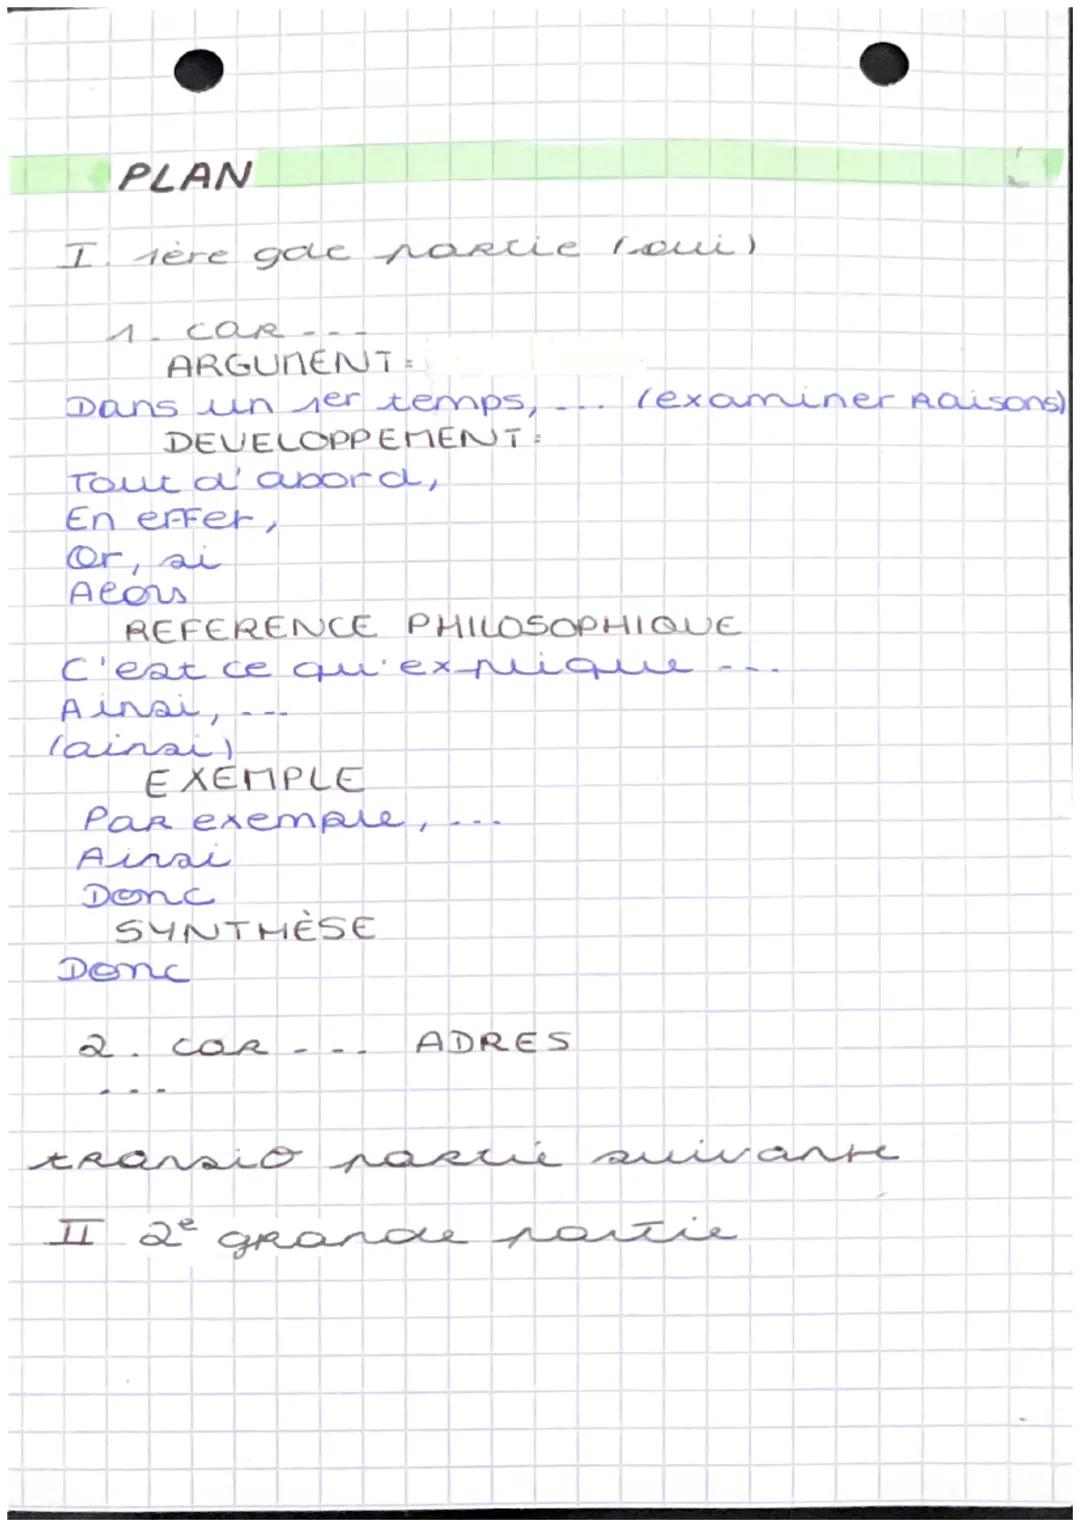 PLAN
I. 1ère gde partie (oui)
1. car ---
ARGUMENT :
Dans un 1er temps, ... (examiner raisons)
DEVELOPPEMENT :
Tout d'abord,
En effet,
Or, si
Alors
REFERENCE PHILOSOPHIQUE
C'est ce qu'explique ---
Ainsi, ---
(ainsi)
EXEMPLE
Par exemple, ---
Ainsi
Donc
SYNTHÈSE
Donc
2. car --- ADRES
---
transio partie suivante
II 2e grande partie